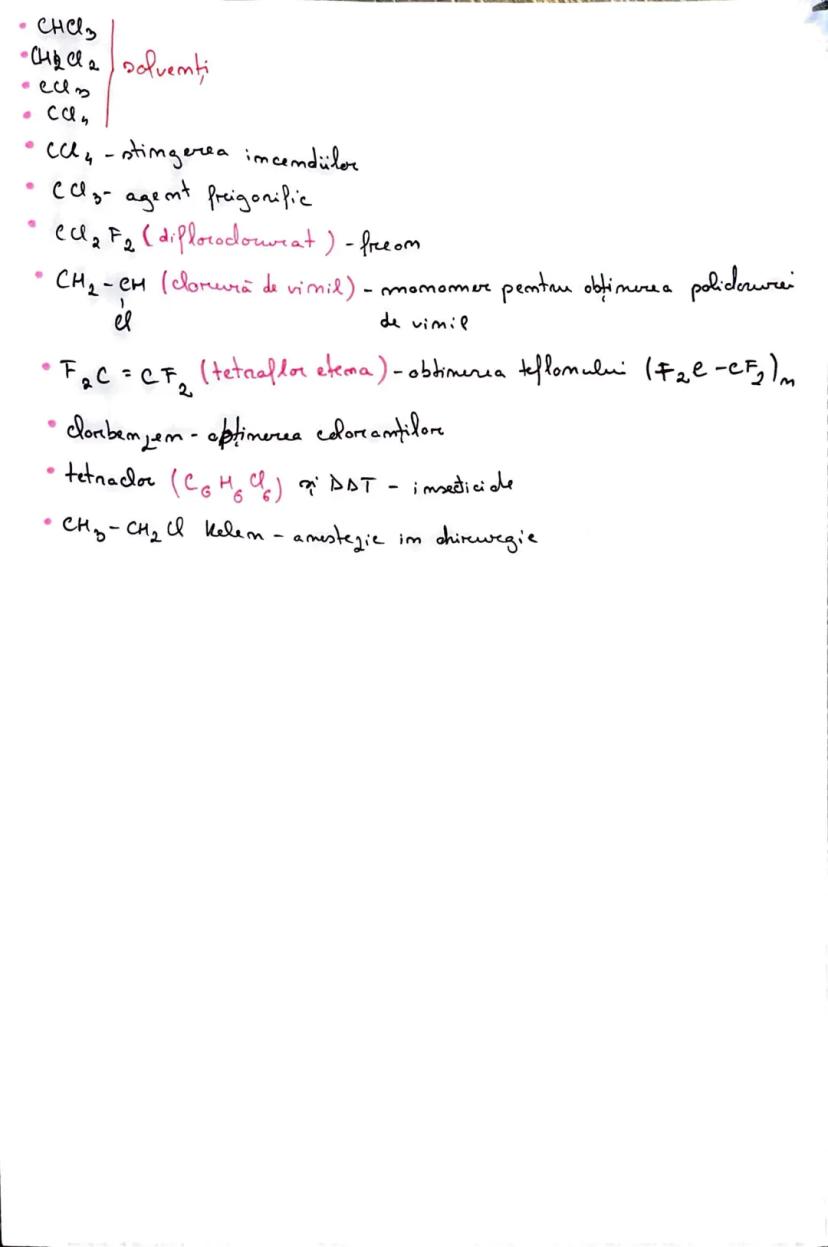 • CHCl3
• CH2Cl2
• CCl3
• CCl4
solvenți
• CCl4 - stingerea incendiilor
• CCl3 - agent frigorific
• CCl2F2 (difloroclorurat) - freon
• CH2 - CH (clorură de vinil) - monomer pentru obținerea policlorurei
Cl
de vinil
• F2C = CF2 (tetraflor etena) - obtinerea teflonului (F2C - CF2)n
• clorbenzen - obținerea coloranților
• tetraclor (C6H6Cl6) și DDT - insecticide
• CH3 - CH2Cl Kelen - anestezie in chirurgie